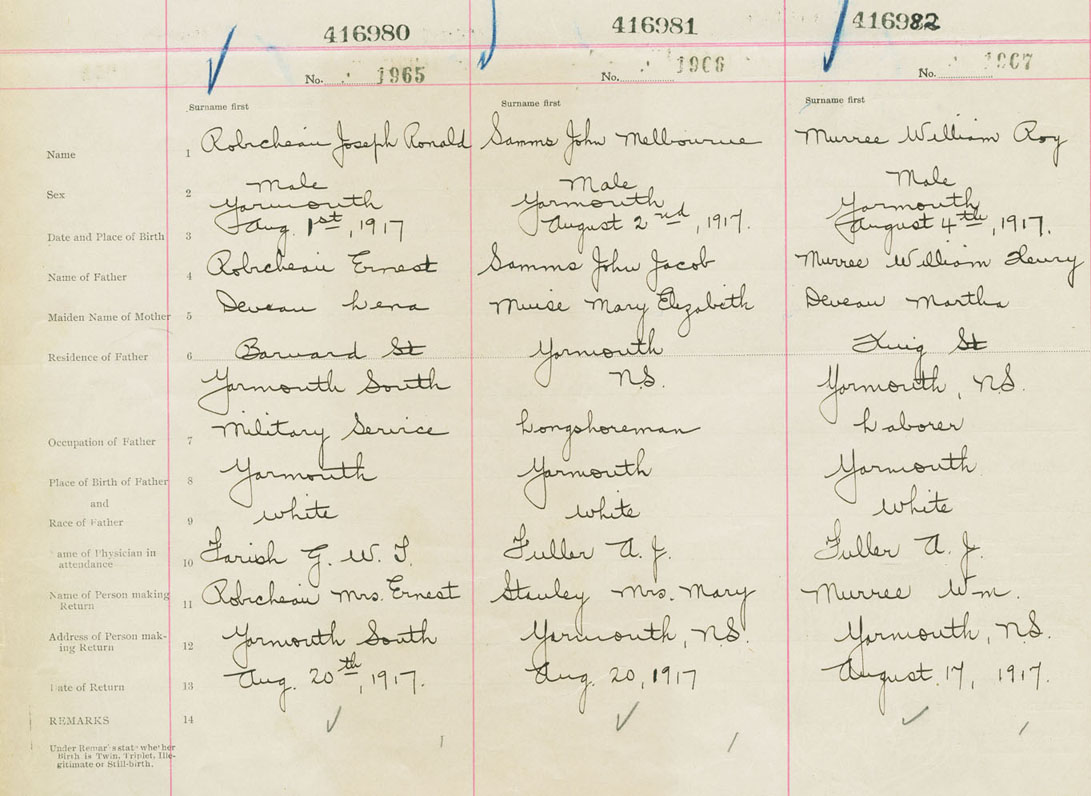 416980 416981 416982
No. 1965 No. 1966 No. 1967
Surname first Surname first Surname first
Name 1 Robicheau Joseph Ronald Samms John Melbourne Murree William Roy
Sex 2 Male Male Male
Yarmouth Yarmouth Yarmouth
Date and Place of Birth 3 Aug. 1st, 1917 August 2nd, 1917. August 4th, 1917.
Name of Father 4 Robicheau Ernest Samms John Jacob Murree William Henry
Maiden Name of Mother 5 Deveau Lena Muise Mary Elizabeth Deveau Martha
Residence of Father 6 Barnard St Yarmouth King St
Yarmouth South N.S. Yarmouth, N.S.
Occupation of Father 7 Military Service Longshoreman Laborer
Place of Birth of Father 8 Yarmouth Yarmouth Yarmouth
and
Race of Father 9 White White White
Name of Physician in
attendance 10 Farish G. W. T. Fuller A. J. Fuller A. J.
Name of Person making
Return 11 Robicheau Mrs. Ernest Stanley Mrs. Mary Murree Wm.
Address of Person mak-
ing Return 12 Yarmouth South Yarmouth, N.S. Yarmouth, N.S.
Date of Return 13 Aug. 20th, 1917. Aug. 20, 1917 August 17, 1917.
REMARKS 14
Under Remarks state whether
Birth is Twin, Triplet, Ille-
gitimate or Still-birth.